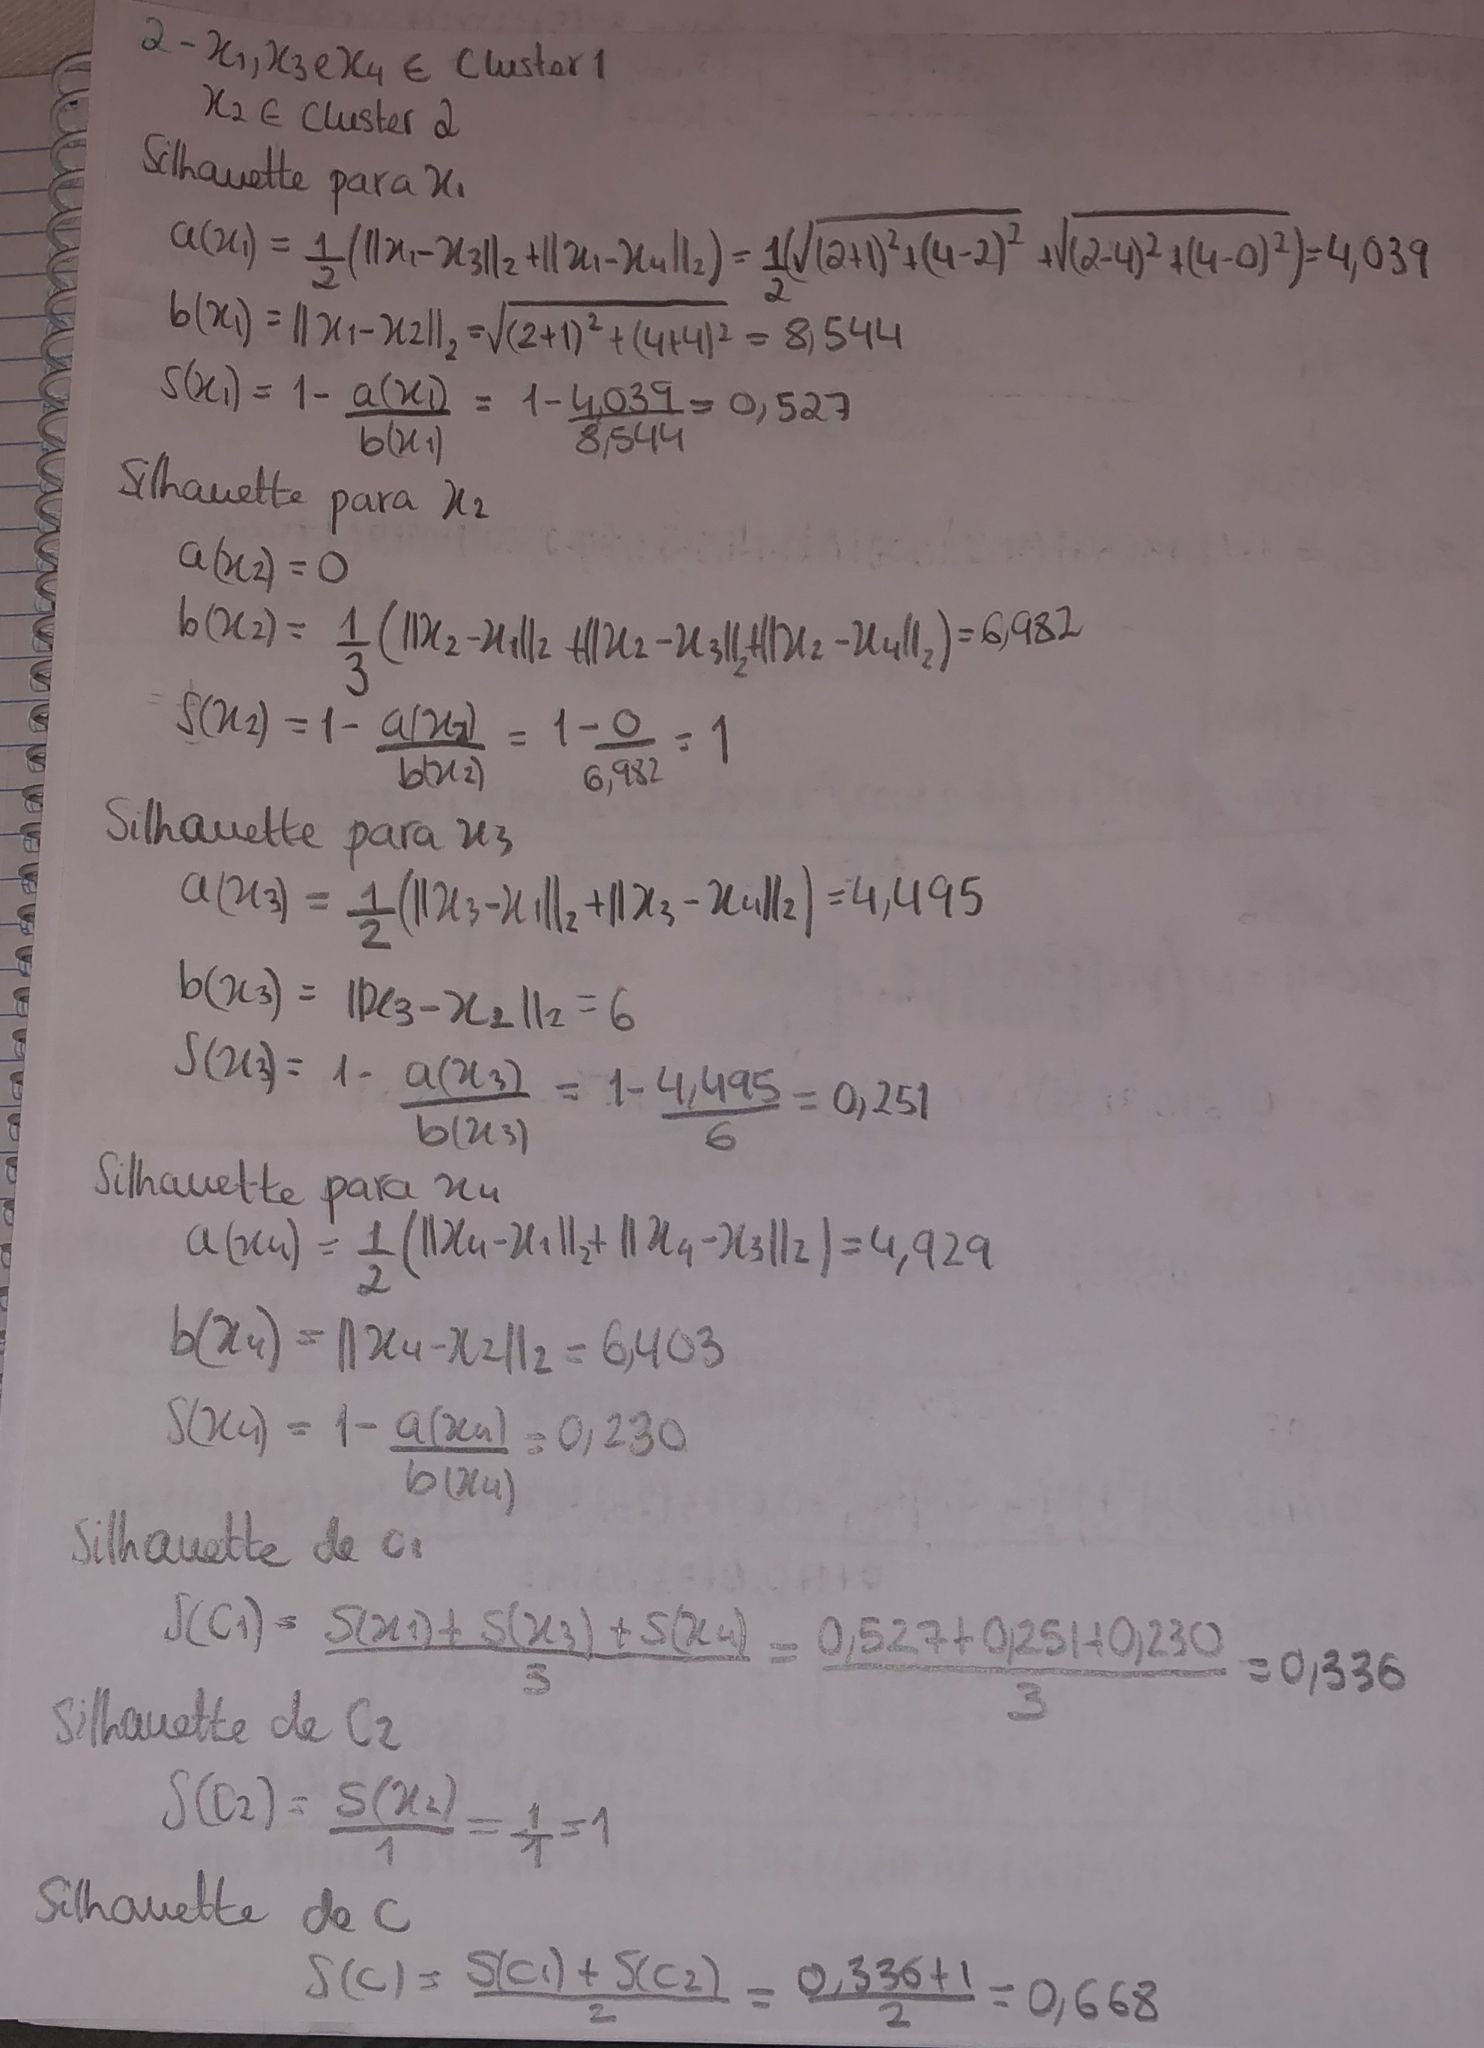 2 - x₁, x₃ e x₄ ∈ Cluster 1
x₂ ∈ Cluster 2
Silhouette para x₁
a(x₁) = 1/2 (||x₁-x₃||₂ + ||x₁-x₄||₂) = 1/2 (√((2+1)²+(4-2)²) + √((2-4)²+(4-0)²)) = 4,039
b(x₁) = ||x₁-x₂||₂ = √((2+1)²+(4+4)²) = 8,544
S(x₁) = 1 - a(x₁)/b(x₁) = 1 - 4,039/8,544 = 0,527
Silhouette para x₂
a(x₂) = 0
b(x₂) = 1/3 (||x₂-x₁||₂ + ||x₂-x₃||₂ + ||x₂-x₄||₂) = 6,982
S(x₂) = 1 - a(x₂)/b(x₂) = 1 - 0/6,982 = 1
Silhouette para x₃
a(x₃) = 1/2 (||x₃-x₁||₂ + ||x₃-x₄||₂) = 4,495
b(x₃) = ||x₃-x₂||₂ = 6
S(x₃) = 1 - a(x₃)/b(x₃) = 1 - 4,495/6 = 0,251
Silhouette para x₄
a(x₄) = 1/2 (||x₄-x₁||₂ + ||x₄-x₃||₂) = 4,929
b(x₄) = ||x₄-x₂||₂ = 6,403
S(x₄) = 1 - a(x₄)/b(x₄) = 0,230
Silhouette de C₁
S(C₁) = (S(x₁) + S(x₃) + S(x₄))/3 = (0,527+0,251+0,230)/3 = 0,336
Silhouette de C₂
S(C₂) = S(x₂)/1 = 1/1 = 1
Silhouette de C
S(C) = (S(C₁) + S(C₂))/2 = (0,336+1)/2 = 0,668